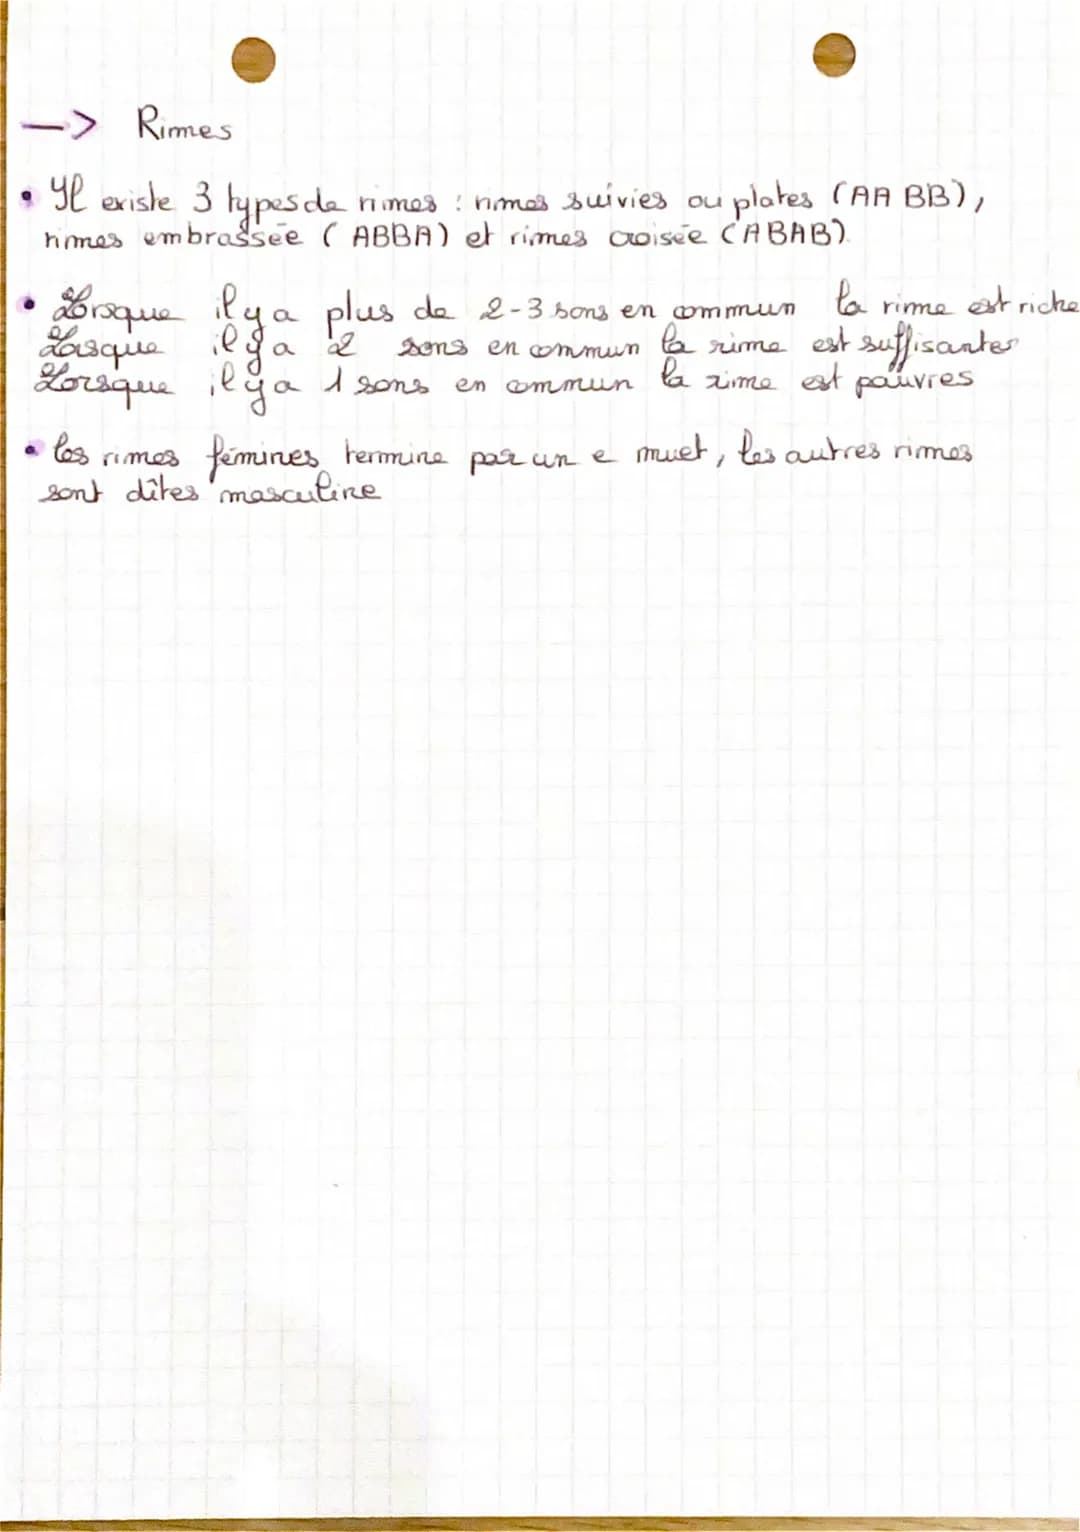 —> Rimes
• Il existe 3 types de rimes : rimes suivies ou plates (AA BB),
rimes embrassée (ABBA) et rimes croisée (ABAB).
• Lorsque il y a plus de 2-3 sons en commun la rime est riche
Lorsque il y a 2 sons en commun la rime est suffisantes
Lorsque il y a 1 sons en commun la rime est pauvres
• les rimes fémines termine par un e muet, les autres rimes
sont dîtes masculine